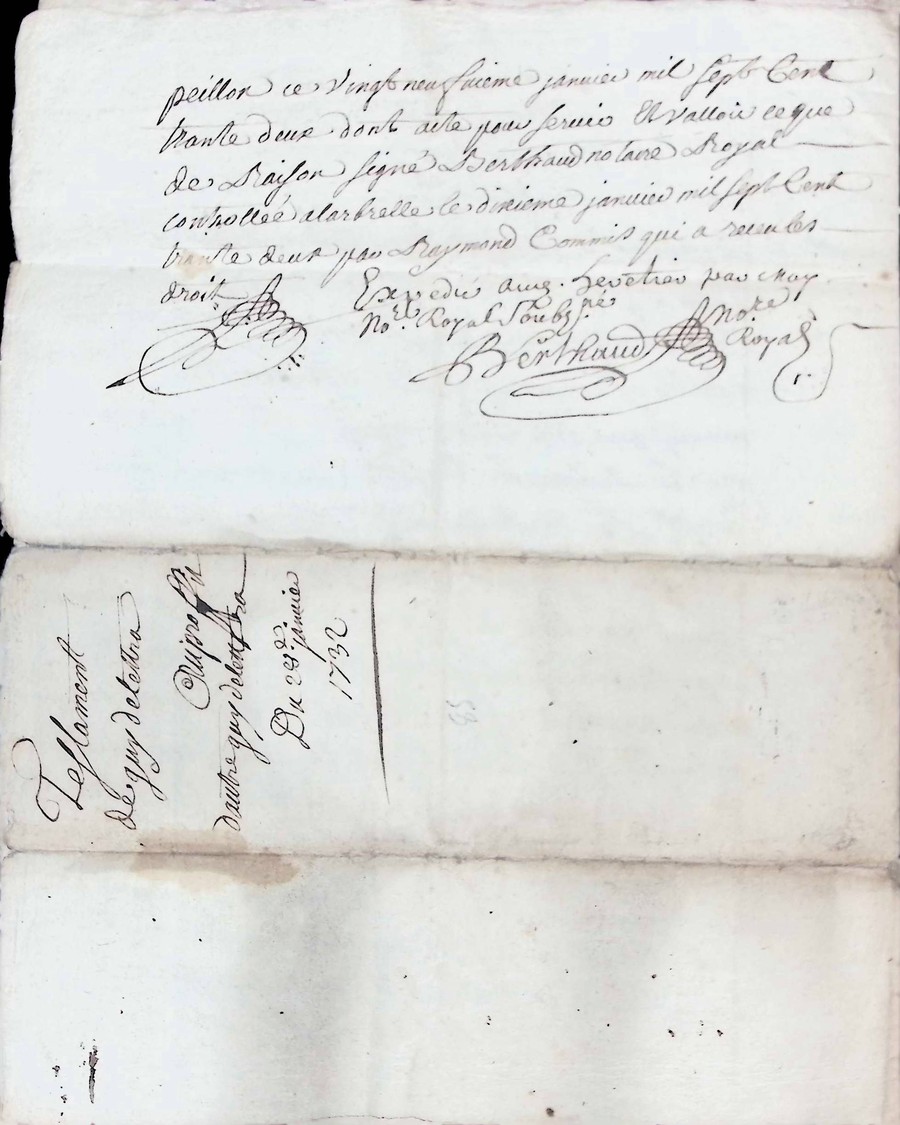 peillon ce vingt neufvieme janvier mil sept Cent
trante deux dont acte pour servir Et valloir ce que
de Raison signé Berthaud notaire Royal
controllée a larbrelle le dixieme janvier mil sept Cent
trante deux par Raymond Commis qui a receu les
droit
Expedié aud. heretier par moy
No.re Royal Soubz.né
Berthaud No.re
Royal
Testament
de guy delettra
Au proffit
dautre guy delettra
Du 28.e janvier
1732